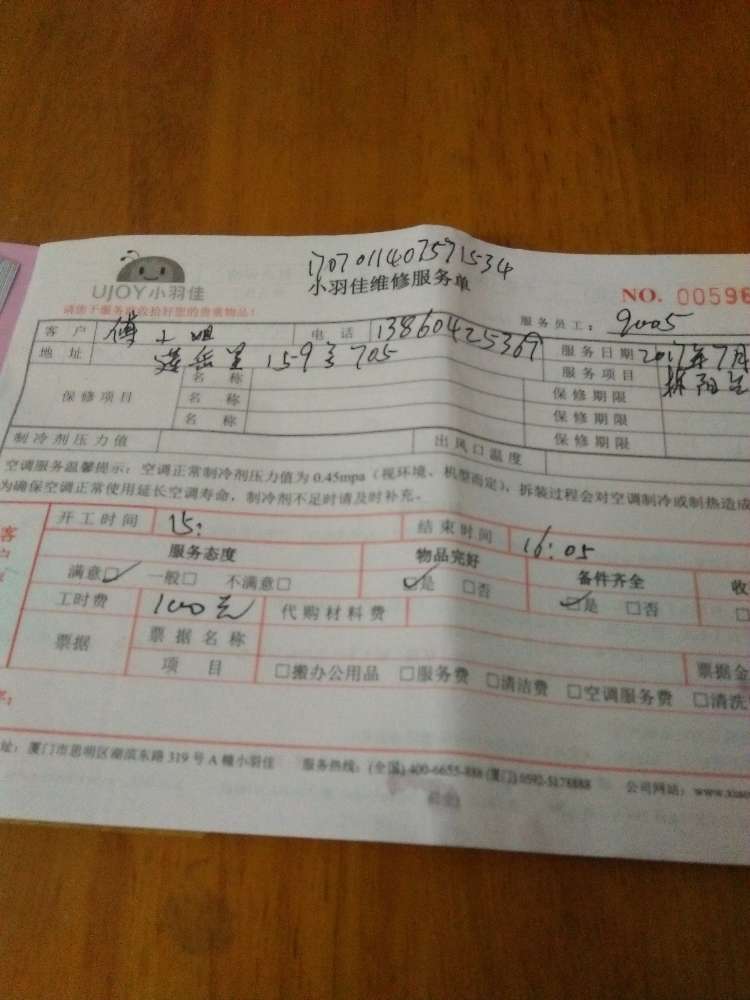 1707011407571534
UJOY小羽佳
小羽佳维修服务单
NO. 00596
请您于服务前收拾好您的贵重物品！
服务员工： 9005
客 户 傅小姐 电 话 13860425369 服务日期 2017年7月
地 址 莲岳里159号705 服务项目
保修项目 名 称 保修期限
名 称 保修期限
名 称 保修期限
制冷剂压力值 出风口温度
空调服务温馨提示：空调正常制冷剂压力值为 0.45mpa（视环境、机型而定），拆装过程会对空调制冷或制热造成
为确保空调正常使用延长空调寿命，制冷剂不足时请及时补充。
客
开工时间 15: 结束时间 16:05
服务态度 物品完好 备件齐全 收
满意☑ 一般□ 不满意□ ☑是 □否 ☑是 □否 □
工时费 100元 代购材料费
票据 票据名称
项 目 □搬办公用品 □服务费 □清洁费 □空调服务费 □清洗 票据金
址：厦门市思明区湖滨东路 319 号 A 幢小羽佳 服务热线：(全国) 400-6655-888 (厦门) 0592-5178888 公司网站：www.xiao